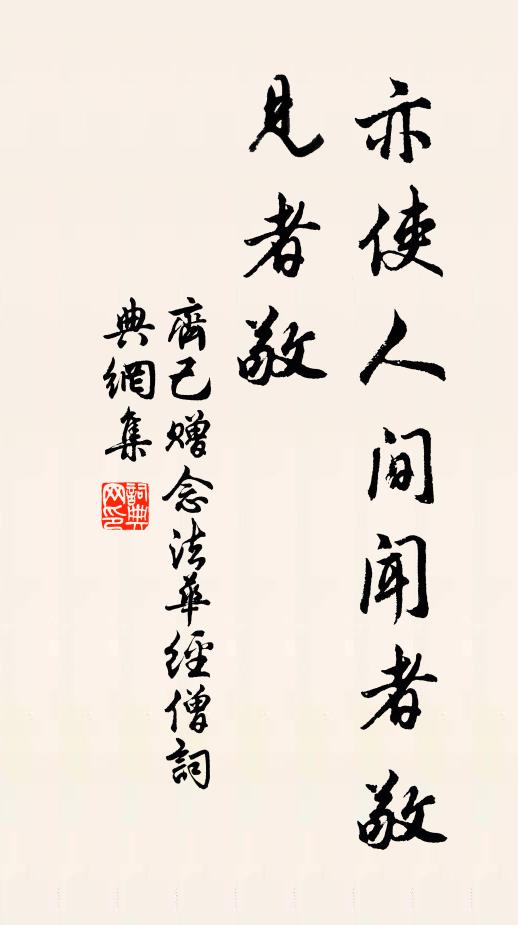 亦使人间闻者敬
见者敬
齊己赠念法華經僧詞
典網集
詞典网印